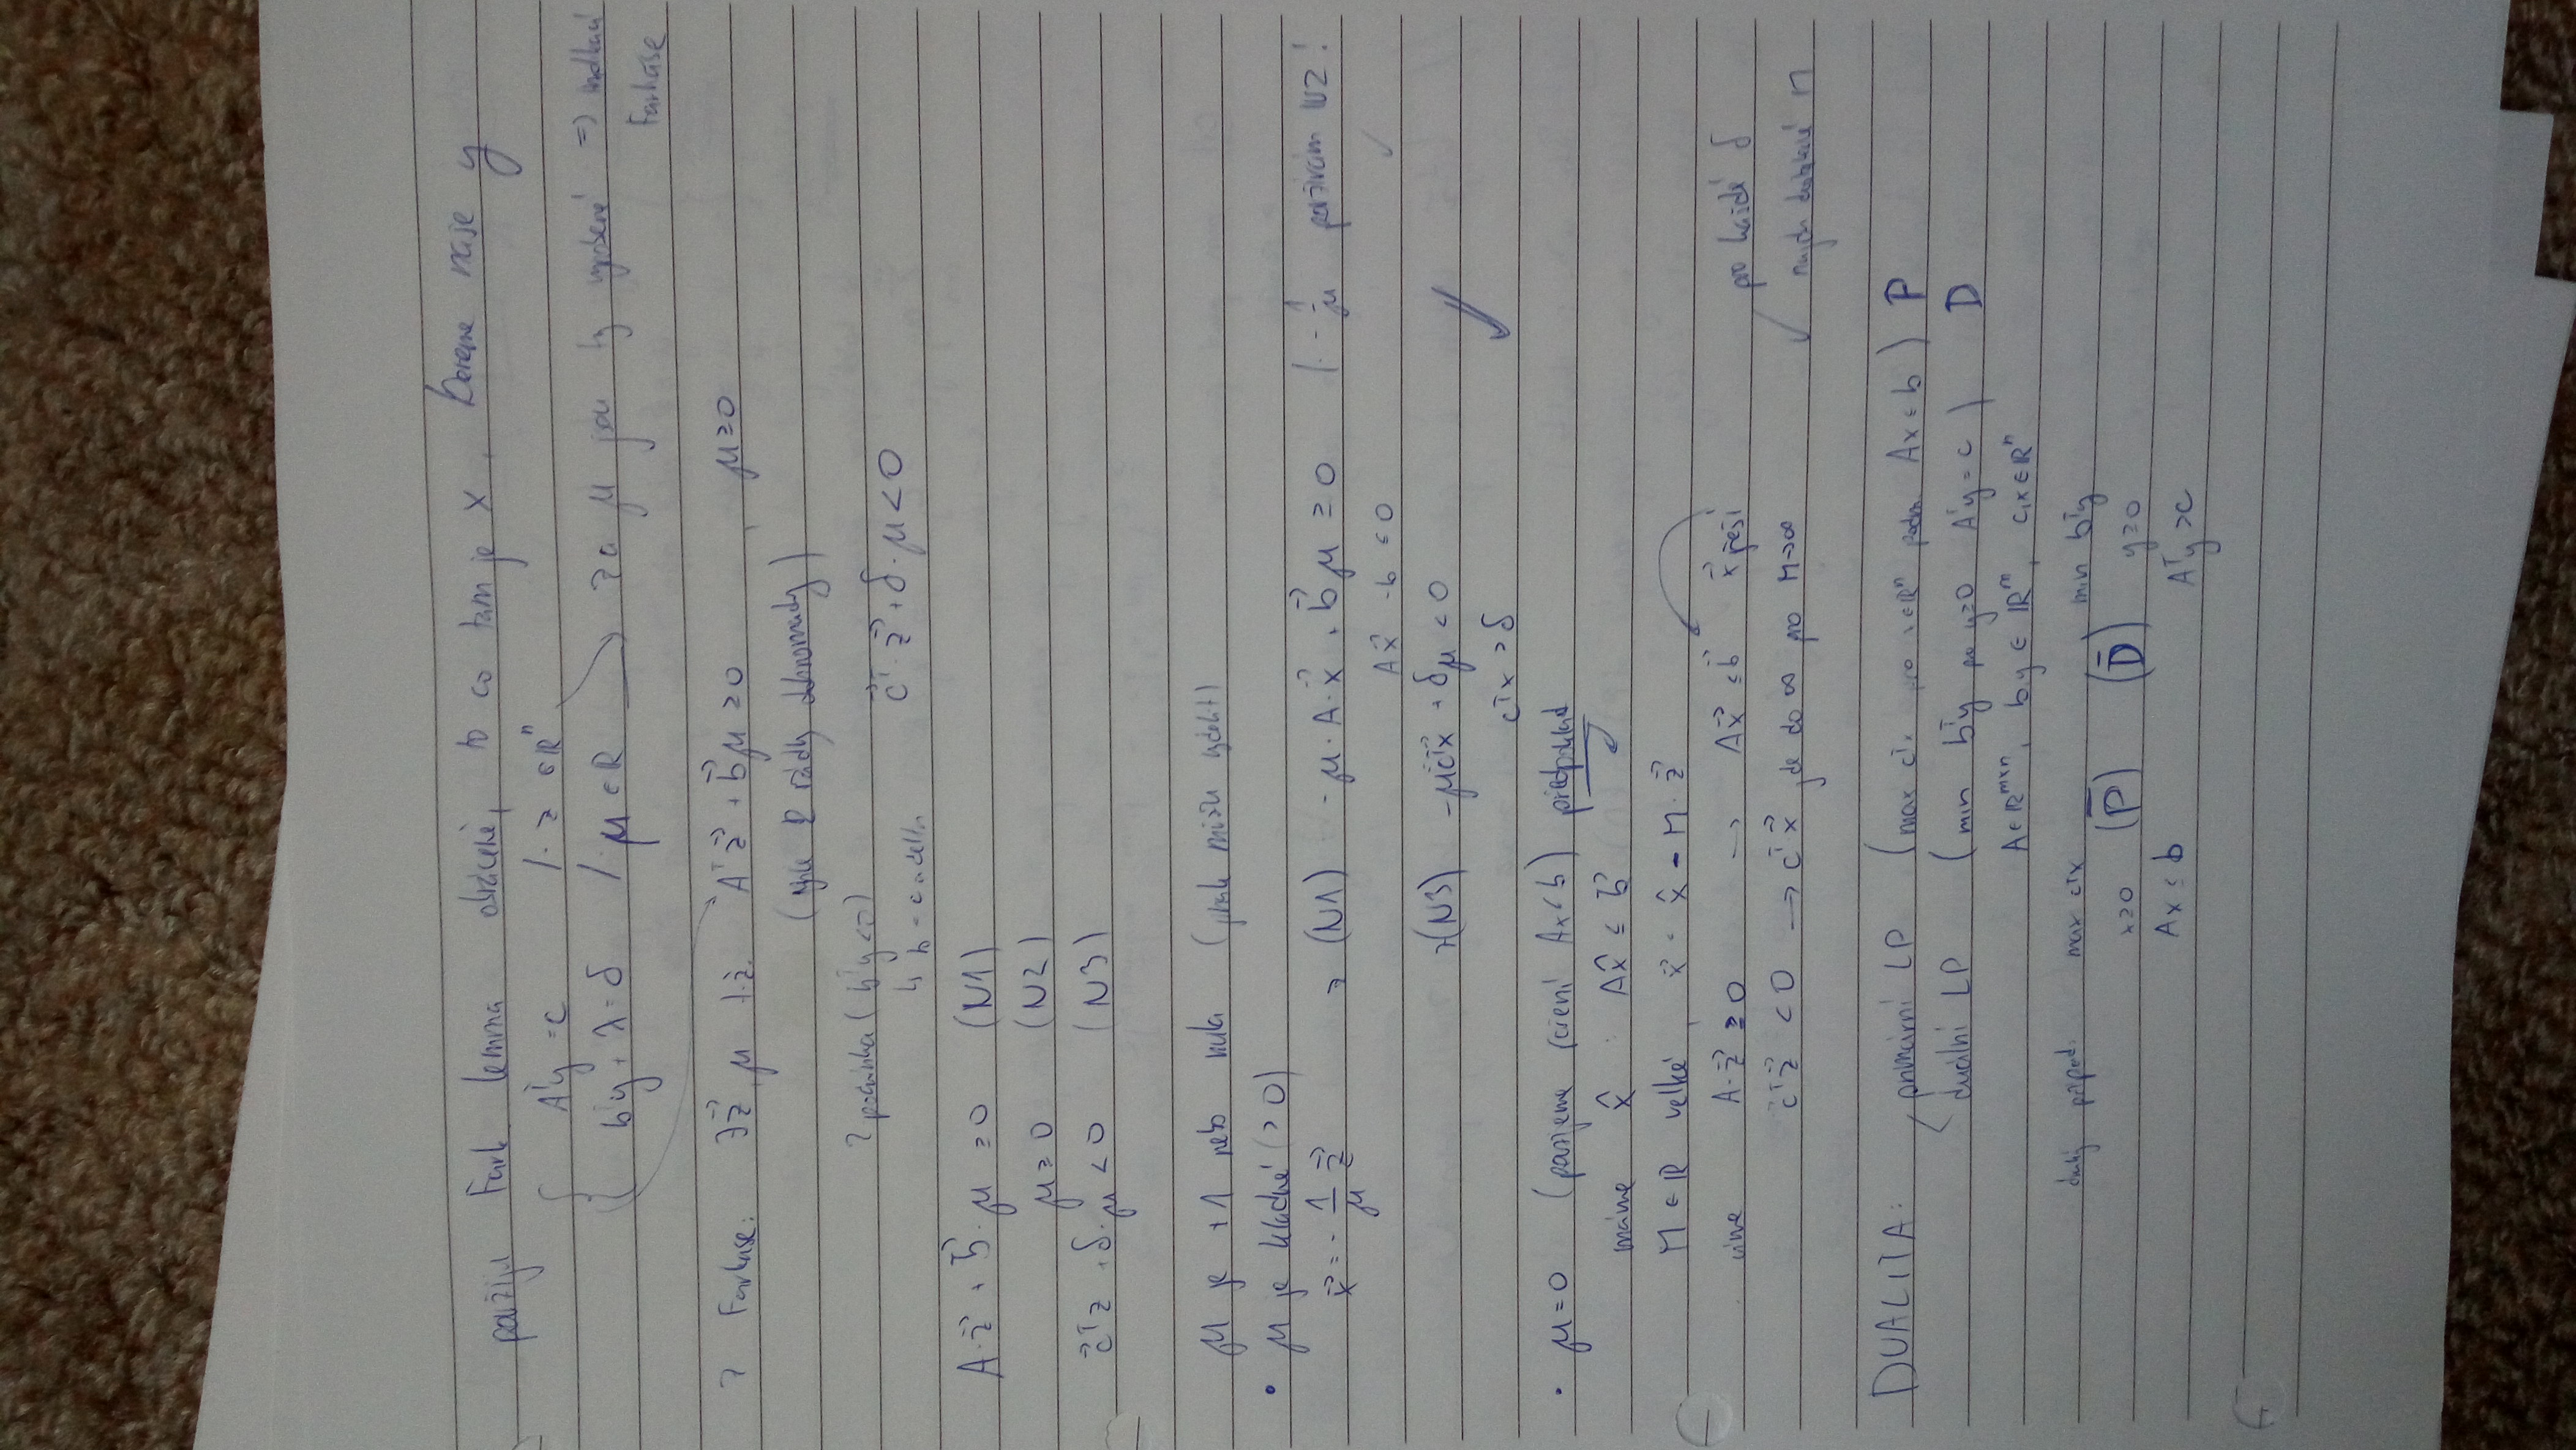 použiju Fark. lemma obráceně, to co tam je x, bereme naše y
Aᵀy = c /· z ∈ ℝⁿ
bᵀy + λ = δ /· μ ∈ ℝ z a μ jsou ty vynásobené =) Farkase
z Farkase: ∃z⃗, μ t.ž. Aᵀz⃗ + b⃗μ ≥ 0, μ ≥ 0
(tyhle 2 řádky dohromady)
z podmínka (bᵀy < 0) c⃗ᵀ·z⃗ + δ·μ < 0
b = c a delta
A·z⃗ + b⃗·μ ≥ 0 (N1)
μ ≥ 0 (N2)
c⃗ᵀz + δ·μ < 0 (N3)
μ je +1 nebo nula (jinak můžu vydělit)
• μ je kladné (> 0)
x⃗ = - 1/μ z⃗ z (N1) -μ·A·x⃗ + b⃗μ ≥ 0 /· -1/μ používám N2!
Ax⃗ - b ≤ 0 ✓
z (N3) -μc⃗ᵀx⃗ + δμ < 0
cᵀx > δ ✓
• μ = 0 (použijeme řešení Ax ≤ b) předpoklad
máme x̂ : Ax̂ ≤ b⃗
M ∈ ℝ velké, x⃗ = x̂ - M·z⃗
víme A·z⃗ ≥ 0 → Ax⃗ ≤ b⃗ x⃗ řeší pro každé δ
c⃗ᵀz⃗ < 0 → c⃗ᵀx⃗ jde do ∞ pro M→∞ ✓ najdu dostatečné M
DUALITA: < primární LP (max cᵀx pro x∈ℝⁿ podm Ax ≤ b) P
duální LP (min bᵀy po y≥0 Aᵀy = c) D
A∈ℝᵐˣⁿ, b,y ∈ ℝᵐ, c,x∈ℝⁿ
druhý případ: max cᵀx min bᵀy
x≥0 (P̄) (D̄) y≥0
Ax ≤ b Aᵀy ≥ c